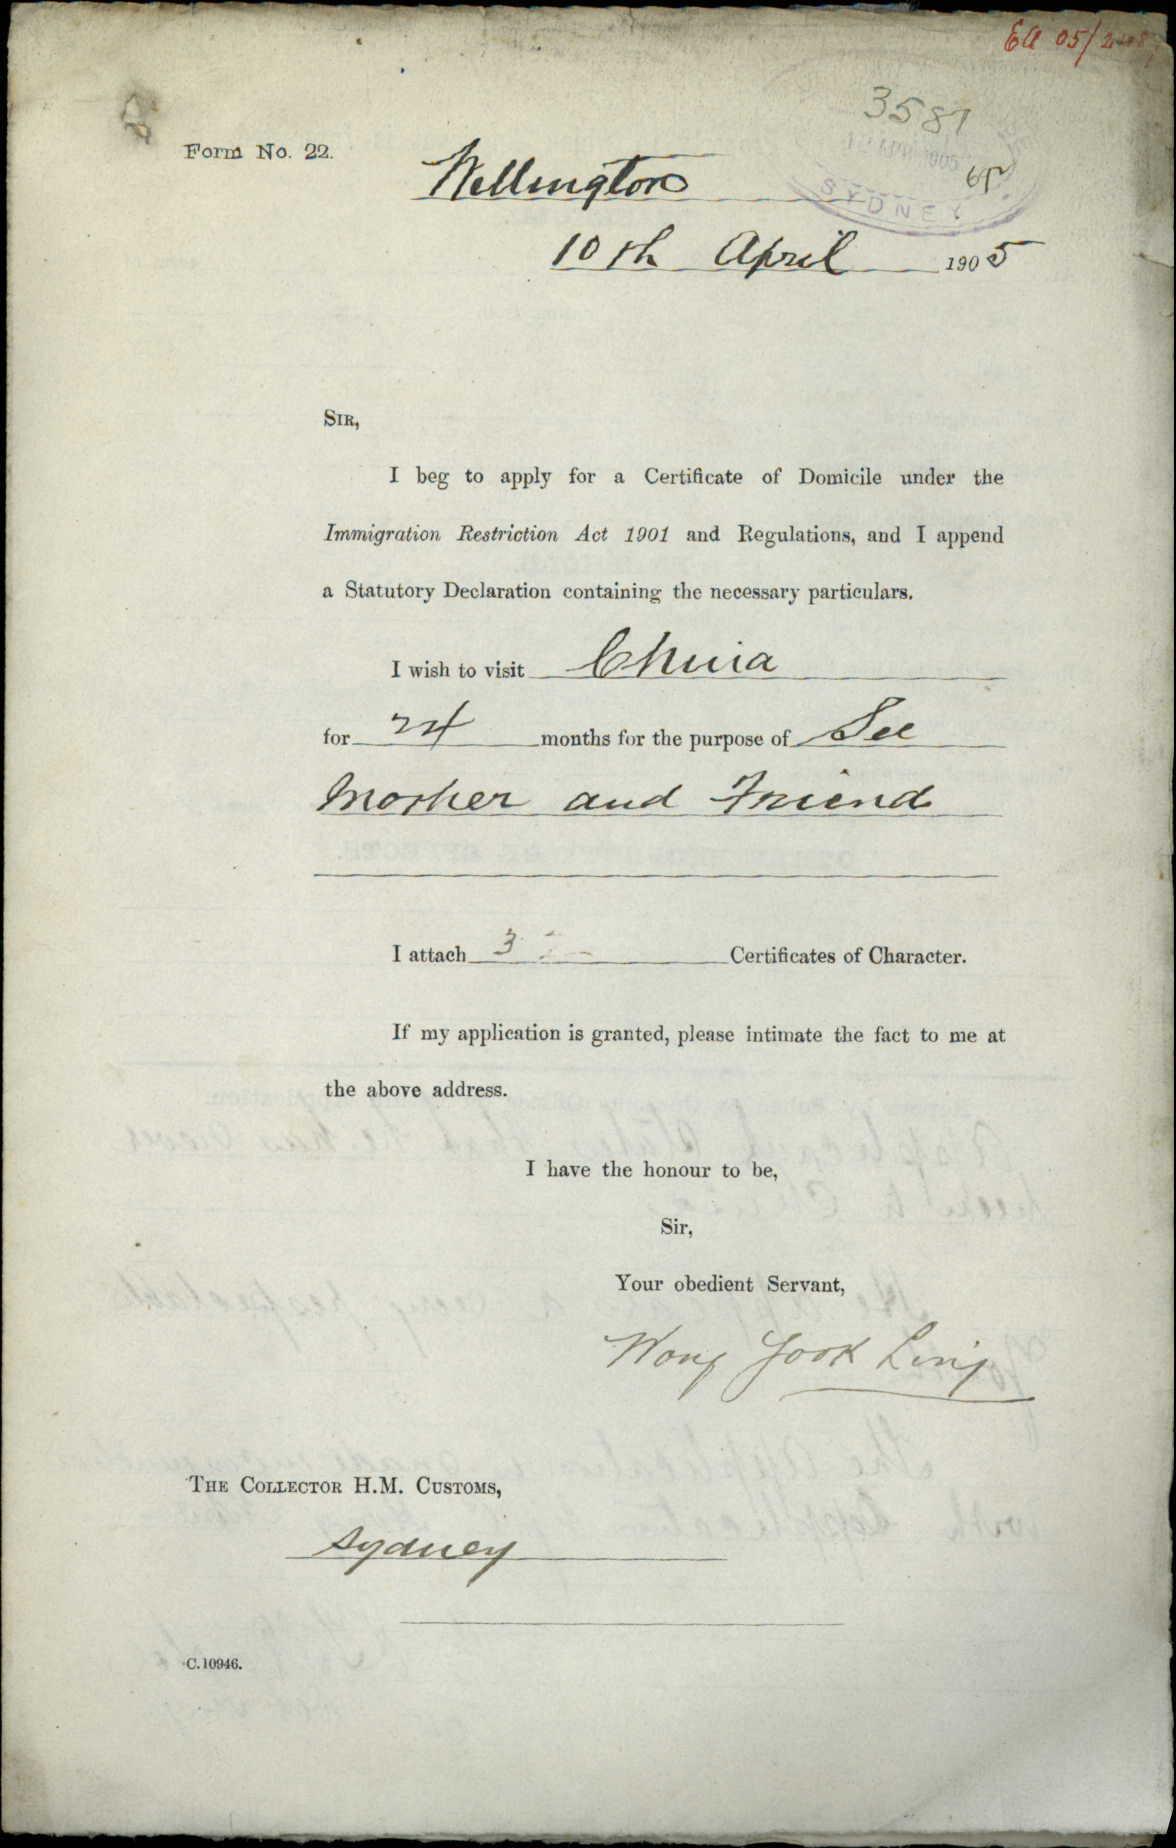 3587
Form No. 22.
Wellington
65
SYDNEY
10th April 1905
SIR,
I beg to apply for a Certificate of Domicile under the
Immigration Restriction Act 1901 and Regulations, and I append
a Statutory Declaration containing the necessary particulars.
I wish to visit China
for 24 months for the purpose of See
Mother and Friend
I attach 3 Certificates of Character.
If my application is granted, please intimate the fact to me at
the above address.
I have the honour to be,
Sir,
Your obedient Servant,
Wong Yook Ling
THE COLLECTOR H.M. CUSTOMS,
Sydney
C.10946.